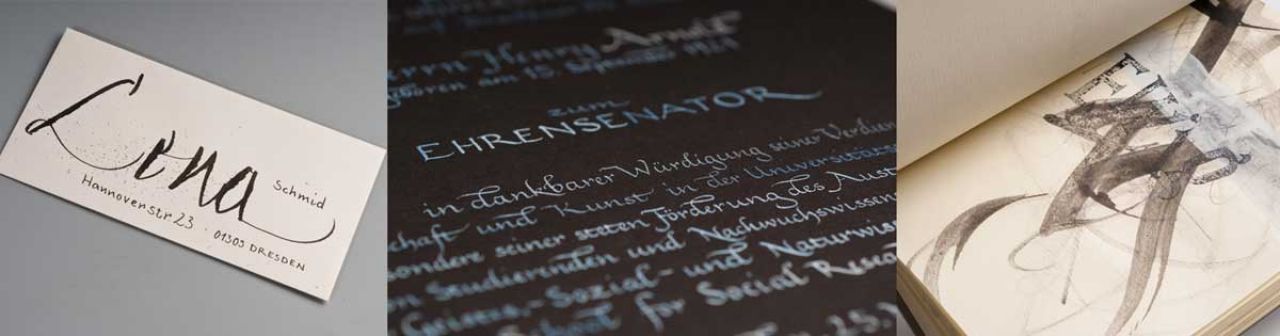 Lena
Schmid
Hannoverstr 23 · 01309 DRESDEN
errn Henry Arnold
boren am 15. September
zum
EHRENSENATOR
in dankbarer Würdigung seiner Verdien
chaft und Kunst in der Universitäts
sondere seiner steten Förderung des Aust
n Studierenden und Nachwuchswissen
Sozial- und Naturwis
for Social Resea
25.